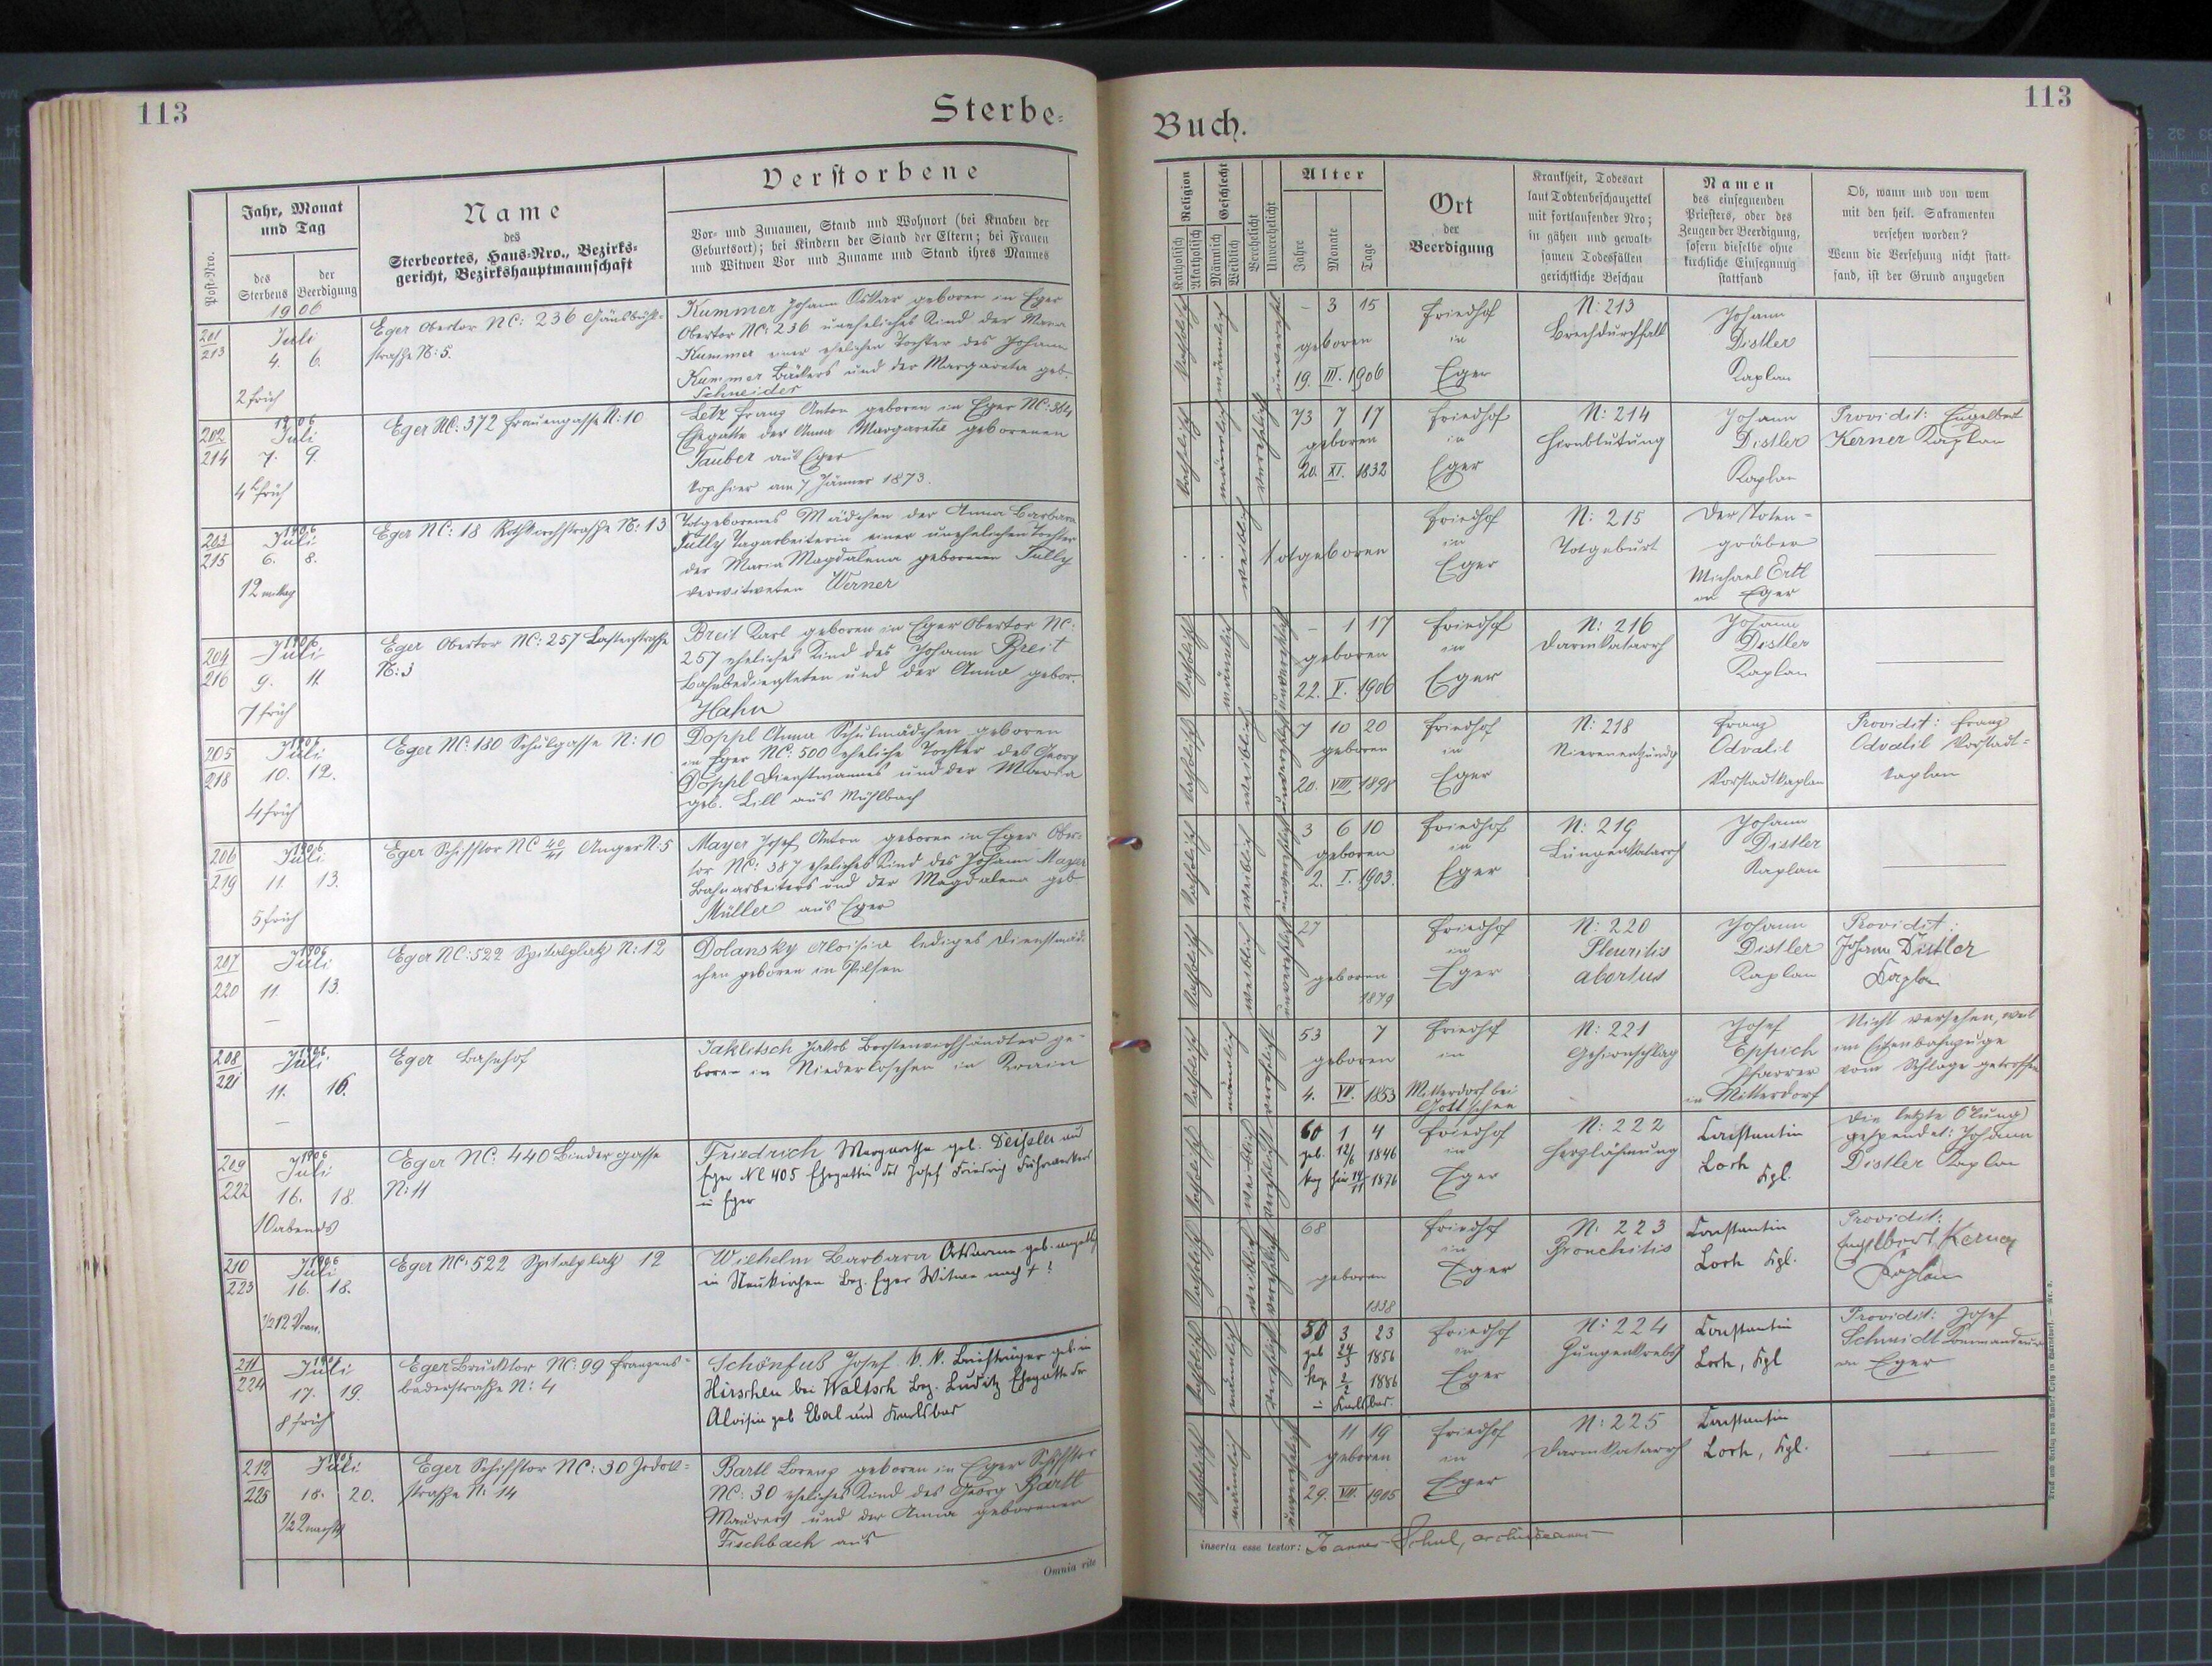 113
Sterbe=
Jahr, Monat
und Tag
Name
des
Sterbeortes, Haus-Nro., Bezirks=
gericht, Bezirkshauptmannschaft
Verstorbene
Vor- und Zunamen, Stand und Wohnort (bei Knaben der
Geburtsort); bei Kindern der Stand der Eltern; bei Frauen
und Witwen Vor und Zuname und Stand ihres Mannes
Post-Nro.
des
Sterbens
der
Beerdigung
1906
201
213
Juli
4. 6.
2 früh
Eger Obertor NC: 236
straße N: 5.
Kummer Johann Oskar geboren in Eger
Obertor NC: 236 uneheliches Kind der Maria
Kummer einer ehelichen Tochter des Johann
Kummer Bäckers und der Margareta geb.
Schneider
202
214
1906
Juli
7. 9.
4 früh
Eger NC: 372 Frauengasse N: 10
Letz Franz Anton geboren in Eger NC: 384
Ehegatte der Anna Margareta geborenen
Tauber aus Eger
kop. hier am 7 Jänner 1873.
203
215
1906
Juli
6. 8.
12 mittag
Eger NC: 18 N: 13
Totgeborenes Mädchen der Anna Barbara
Tully Tagarbeiterin einer unehelichen Tochter
der Maria Magdalena geborenen Tully
verwitweten Werner
204
216
1906
Juli
9. 11.
7 früh
Eger Obertor NC: 257
N: 3
Breit Karl geboren in Eger Obertor NC:
257 eheliches Kind des Johann Breit
Bahnbediensteten und der Anna gebor.
Hahn
205
218
1906
Juli
10. 12.
4 früh
Eger NC: 180 Schulgasse N: 10
Doppl Anna Schulmädchen geboren
in Eger NC: 500 eheliche Tochter des Georg
Doppl Dienstmannes und der Maria
geb. Lill aus Mühlbach
206
219
1906
Juli
11. 13.
5 früh
Eger Schifftor NC 40/41 Anger N: 5
Mayer Josef Anton geboren in Eger Ober=
tor NC: 387 eheliches Kind des Johann Mayer
Bahnarbeiters und der Magdalena geb
Müller aus Eger
207
220
1906
Juli
11. 13.
Eger NC: 522 Spitalplatz N: 12
Dolansky Aloisia lediges Dienstmäd=
chen geboren in Pilsen
208
221
1906
Juli
11. 16.
Eger Bahnhof
Jaklitsch Jakob ge=
boren in Niederloschin in Krain
209
222
1906
Juli
16. 18.
10 abends
Eger NC: 440 Bindergasse
N: 11
Friedrich Margaretha geb. Deißler aus
Eger NC 405 Ehegattin des Josef Friedrich Fuhrwerkers
in Eger
210
223
1906
Juli
16. 18.
1/2 12 Vorm.
Eger NC: 522 Spitalplatz 12
Wilhelm Barbara Ortsarme geb.
in Neukirchen Bez. Eger Witwe nach + ?
211
224
Juli
17. 19.
8 früh
Eger Brucktor NC: 99 Franzens=
baderstraße N: 4
Schönfuß Josef geb. in
Hirschen bei Waltsch Bez. Luditz Ehegatte der
Aloisia geb. aus Karlsbad
212
225
Juli
18. 20.
1/2 2 nachts
Eger Schifftor NC: 30
straße N: 14
Bartl Lorenz geboren in Eger Schifftor
NC: 30 eheliches Kind des Georg Bartl
Maurers und der Anna geborenen
Fischbach aus
Omnia rite
Buch.
113
Religion
Geschlecht
Katholisch
Akatholisch
Männlich
Weiblich
Verehelicht
Unverehelicht
Alter
Jahre
Monate
Tage
Ort
der
Beerdigung
Krankheit, Todesart
laut Todtenbeschauzettel
mit fortlaufender Nro;
in gähen und gewalt=
samen Todesfällen
gerichtliche Beschau
Namen
des einsegnenden
Priesters, oder des
Zeugen der Beerdigung,
sofern dieselbe ohne
kirchliche Einsegnung
stattfand
Ob, wann und von wem
mit den heil. Sakramenten
versehen worden?
Wenn die Versehung nicht statt=
fand, ist der Grund anzugeben
katholisch männlich unverehelicht
– 3 15
geboren
19. III. 1906
Friedhof
in
Eger
N: 213
Brechdurchfall
Johann
Distler
Kaplan
katholisch männlich verehelicht
73 7 17
geboren
20. XI. 1832
Friedhof
in
Eger
N: 214
Hirnblutung
Johann
Distler
Kaplan
Providit: Engelbert
Kerner Kaplan
weiblich
totgeboren
Friedhof
in
Eger
N: 215
Totgeburt
Der Toten=
gräber
Michael Ertl
in Eger
katholisch männlich unverehelicht
– 1 17
geboren
22. V. 1906
Friedhof
in
Eger
N: 216
Darmkatarrh
Johann
Distler
Kaplan
katholisch weiblich unverehelicht
7 10 20
geboren
20. VIII. 1898
Friedhof
in
Eger
N: 218
Nierenentzündg
Franz
Odvalil
Vorstadtkaplan
Providit: Franz
Odvalil Vorstadt=
kaplan
katholisch weiblich unverehelicht
3 6 10
geboren
2. I. 1903.
Friedhof
in
Eger
N: 219
Lungenkatarrh
Johann
Distler
Kaplan
katholisch weiblich unverehelicht
27
geboren
1879
Friedhof
in
Eger
N: 220
Pleuritis
abortus
Johann
Distler
Kaplan
Providit:
Johann Distler
Kaplan
katholisch männlich verehelicht
53 7
geboren
4. VII. 1853
Friedhof
in
Mitterdorf bei
Gottschee
N: 221
Gehirnschlag
Josef
Eppich
Pfarrer
in Mitterdorf
Nicht versehen, weil
im Eisenbahnzuge
vom Schlage getroffen
katholisch weiblich verehelicht
60 1 4
geb. 12/6 1846
kop. hier 14/11 1876
Friedhof
in
Eger
N: 222
Herzlähmung
Constantin
Lorh Kpl.
Die letzte Ölung
gespendet: Johann
Distler Kaplan
katholisch weiblich verehelicht
68
geboren
1838
Friedhof
in
Eger
N: 223
Bronchitis
Constantin
Lorh Kpl.
Providit:
Engelbert Kerner
Kaplan
katholisch männlich verehelicht
50 3 23
geb. 24/3 1856
kop. 2/2 1886
in Karlsbad.
Friedhof
in
Eger
N: 224
Zungenkrebs
Constantin
Lorh, Kpl
Providit: Josef
Schmidt
in Eger
katholisch männlich unverehelicht
11 19
geboren
29. VII. 1905
Friedhof
in
Eger
N: 225
Darmkatarrh
Constantin
Lorh, Kpl.
inserta esse testor: